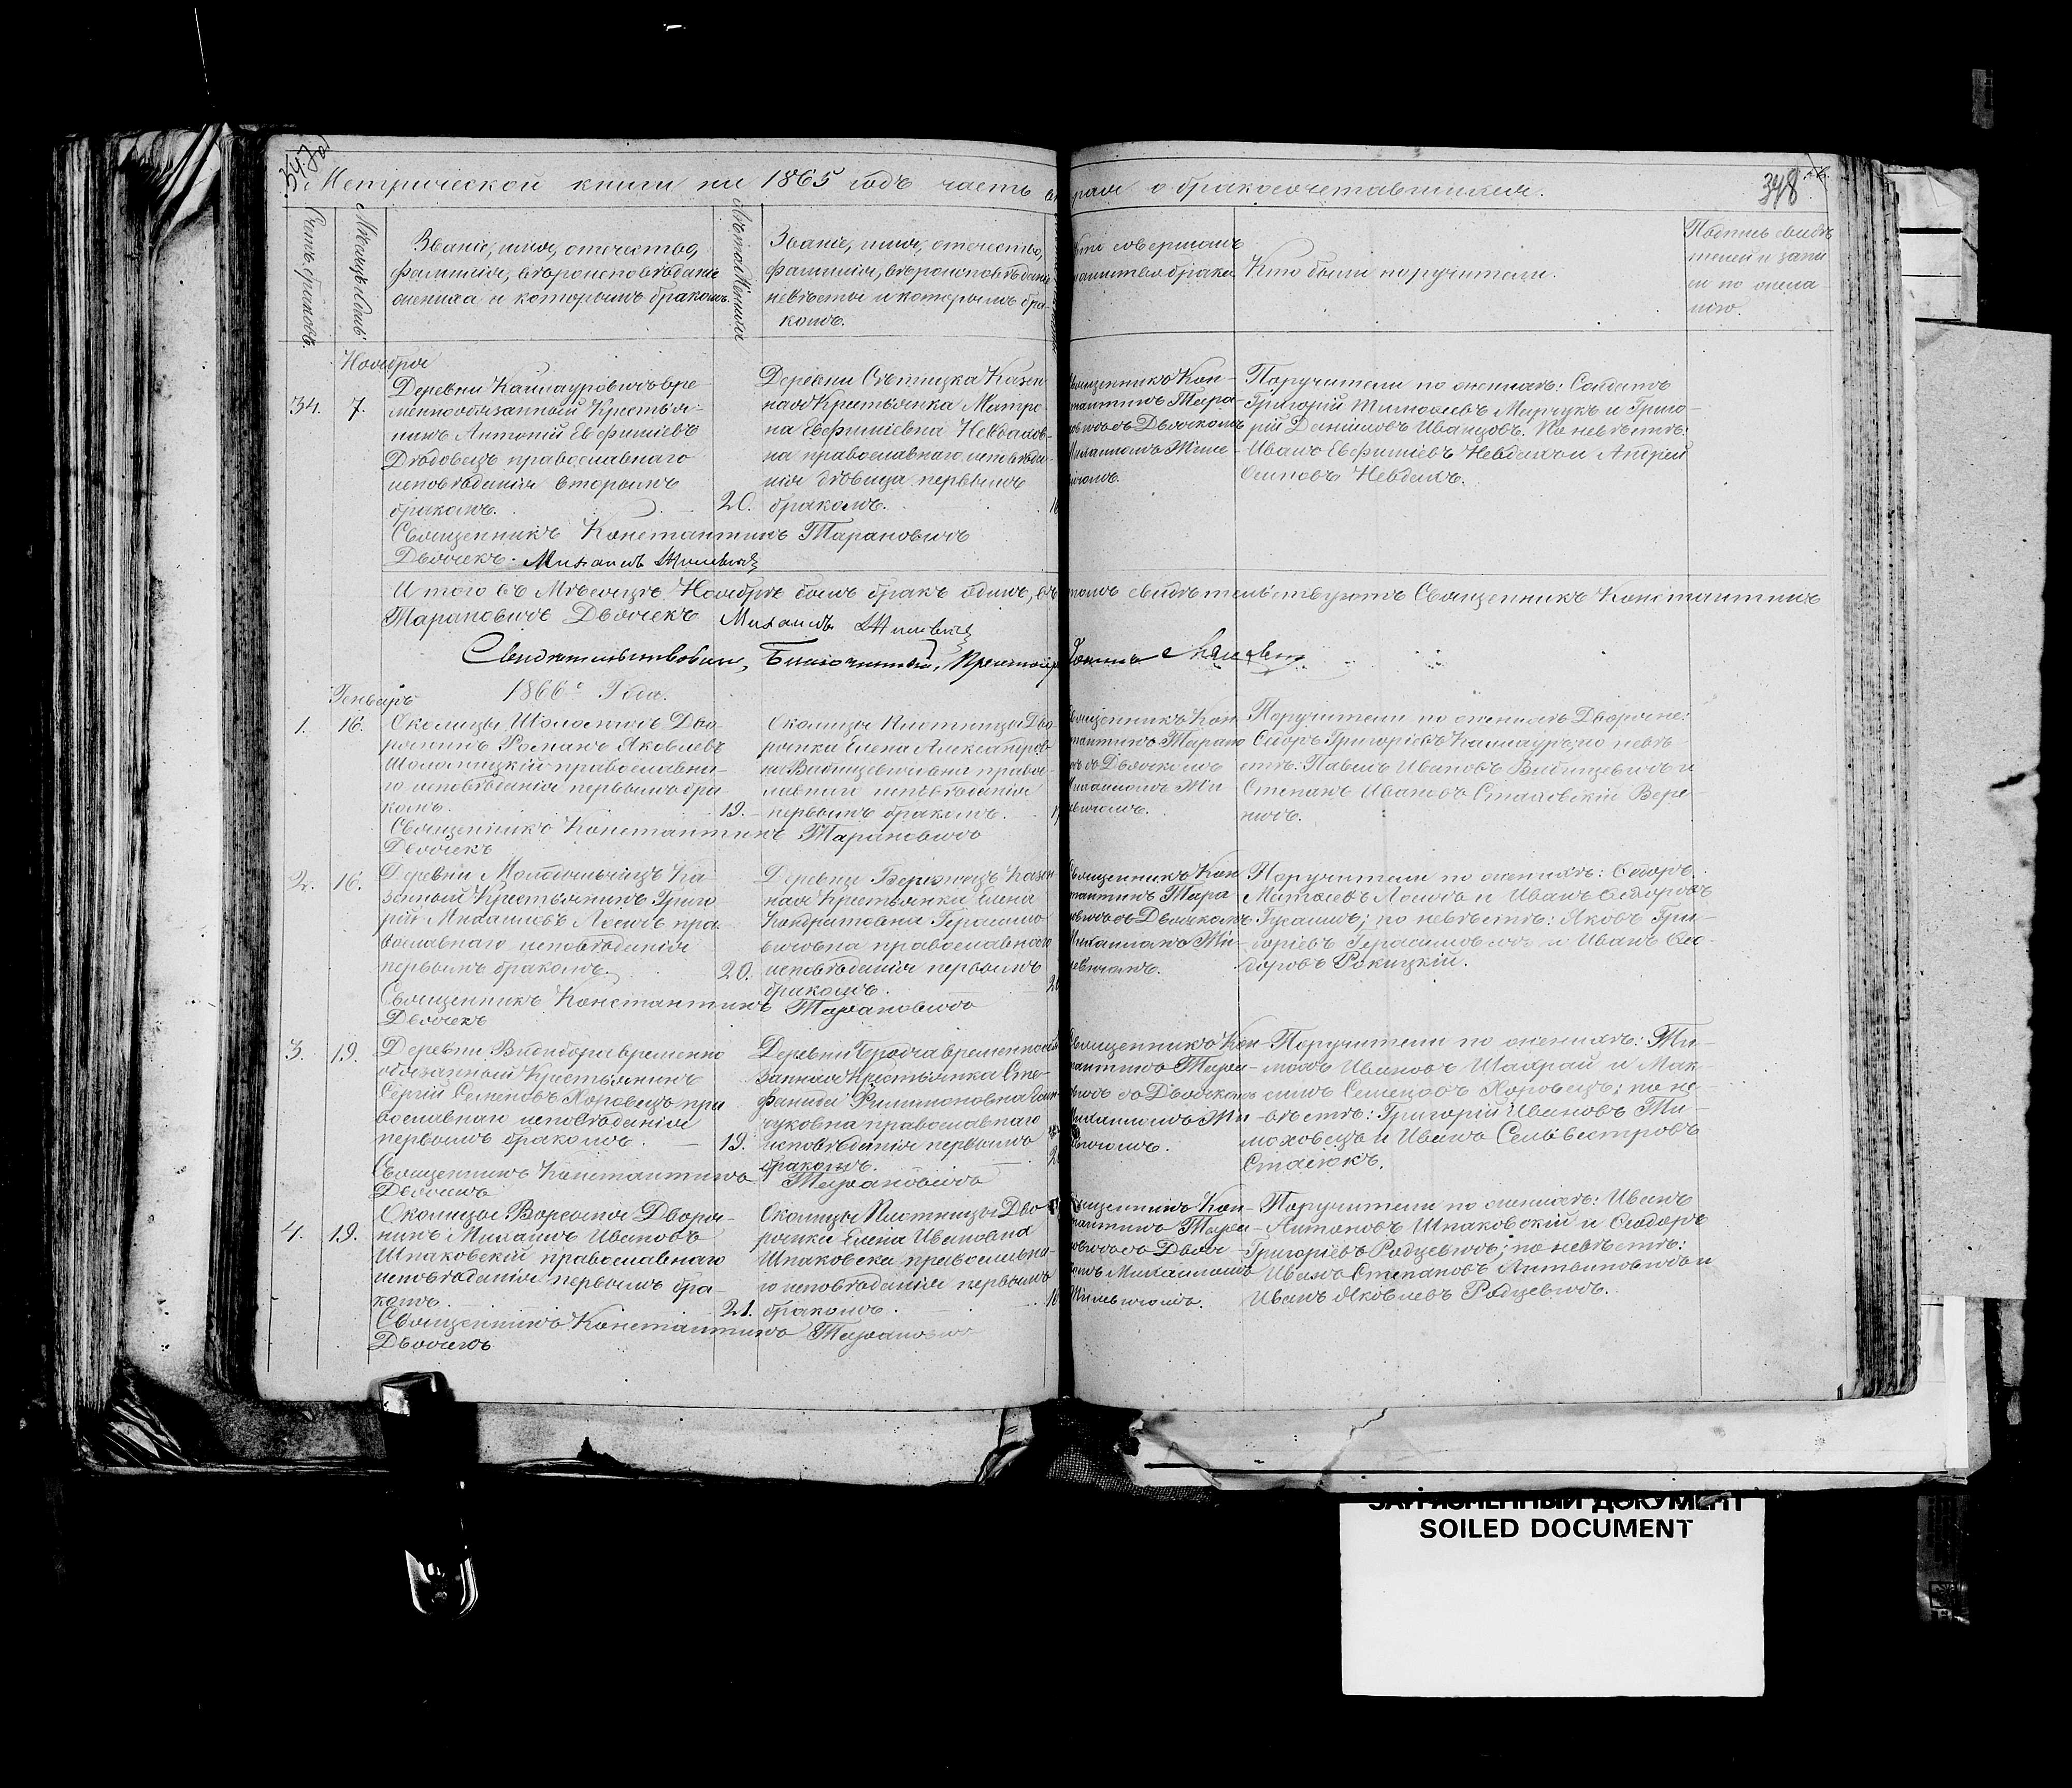 347 об
Метрической книги на 1865 годъ часть вто
рая о бракосочетавшихся.
348
Счетъ браковъ.
Мѣсяцъ и день
Званіе, имя, отечество,
фамилія, вѣроисповѣданіе
жениха и которымъ бракомъ.
Лѣта жениха
Званіе, имя, отечество,
фамилія, вѣроисповѣданіе
невѣсты и которымъ бра-
комъ.
Кто совершалъ
таинство брака
Кто были поручители.
Подпись свидѣ
телей и запи
си по жела-
нію.
Ноября
34.
7.
Деревни Каллауровичъ вре-
меннообязанный Крестья-
нинъ Антоній Евфиміевъ
Дѣдовецъ православнаго
исповѣданія вторымъ
бракомъ.
20.
Деревни Сѣтицка Казен
ная Крестьянка Матро
на Евфиміевна
на православнаго исповѣда-
нія дѣвица первымъ
бракомъ.
Священникъ Кон-
стантинъ Тара-
новичъ съ Дьячкомъ
Михаиломъ Миле-
вичомъ.
Поручители по женихѣ: Солдатъ
Григорій Тимофеевъ Марчукъ и Григо-
рій Даниловъ Иванцовъ. По невѣстѣ:
Иванъ Евфиміевъ и Андрей
Осиповъ
Священникъ Константинъ Тарановичъ
Дьячекъ Михаилъ Милевичъ
Итого въ Мѣсяцѣ Ноябрѣ былъ бракъ одинъ, въ
томъ свидѣтельствуютъ Священникъ Константинъ
Тарановичъ Дьячекъ Михаилъ Милевичъ
Свидѣтельствовалъ, Благочинный, Протоіерей
Іоаннъ
Генварь
1866 Года.
1.
16.
Околицы Шоломичъ Дво-
рянинъ Романъ Яковлевъ
Шоломицкій православна-
го исповѣданія первымъ бра-
комъ.
19.
Околицы Плотницы Дво
рянка Елена Александров
на православ-
лавнаго исповѣданія
первымъ бракомъ.
Священникъ Кон
стантинъ Таран
съ Дьячкомъ
Михаиломъ Ми
левичомъ.
Поручители по женихѣ Дворяне:
Сидоръ Григоріевъ Каллауръ; по невѣ-
стѣ: Павелъ Ивановъ и
Степанъ Ивановъ Стаховскій Вере-
ничъ.
Священникъ Константинъ Тарановичъ
Дьячекъ
2.
16.
Деревни Молодельчицъ Ка-
зенный Крестьянинъ Григо
рій Михаиловъ пра
вославнаго исповѣданія
первымъ бракомъ.
20.
Деревни Бережецъ Казен
ная Крестьянка Елена
Кондратовна Герасимо-
вичовна православнаго
исповѣданія первымъ
бракомъ.
20
Священникъ Кон
стантинъ Тара
новичъ съ Дьячкомъ
Михаиломъ Ми-
левичомъ.
Поручители по женихѣ: Сидоръ
Матѳеевъ и Иванъ Сидоровъ
по невѣстѣ: Яковъ Гри-
горіевъ Герасимовичъ и Иванъ Си-
доровъ Рокицкій.
Священникъ Константинъ Тарановичъ
Дьячекъ
3.
19.
Деревни Видибора временно
обязанный Крестьянинъ
Сергій Семеновъ Коровецъ пра
вославнаго исповѣданія
первымъ бракомъ.
19.
Деревни Бродча временнообя
занная Крестьянка Сте-
фанида Филимоновна
православнаго
исповѣданія первымъ
бракомъ.
Священникъ Кон-
стантинъ Тара-
новичъ съ Дьячкомъ
Михаиломъ Ми-
левичомъ.
Поручители по женихѣ: Ти-
моѳ Ивановъ Шахрай и Мак-
симъ Семеновъ Коровецъ; по не-
вѣстѣ: Григорій Ивановъ Ти-
моховецъ и Иванъ Сельвестровъ
Стасюкъ.
Священникъ Константинъ Тарановичъ
Дьячекъ
4.
19.
Околицы Ворсыни Дворя-
нинъ Михаилъ Ивановъ
Шпаковскій православнаго
исповѣданія первымъ бра-
комъ.
21.
Околицы Плотницы Дво
рянка Елена Ивановна
Шпаковска православна-
го исповѣданія первымъ
бракомъ.
Священникъ Кон-
стантинъ Тара-
новичъ съ Дьяч-
комъ Михаиломъ
Милевичомъ.
Поручители по женихѣ: Иванъ
Антоновъ Шпаковскій и Сидоръ
Григоріевъ Родзевичъ; по невѣстѣ:
Иванъ Степановъ Антыповичъ и
Иванъ Яковлевъ Родзевичъ.
Священникъ Константинъ Тарановичъ
Дьячекъ
ЗАГРЯЗНЕННЫЙ ДОКУМЕНТ
SOILED DOCUMENT